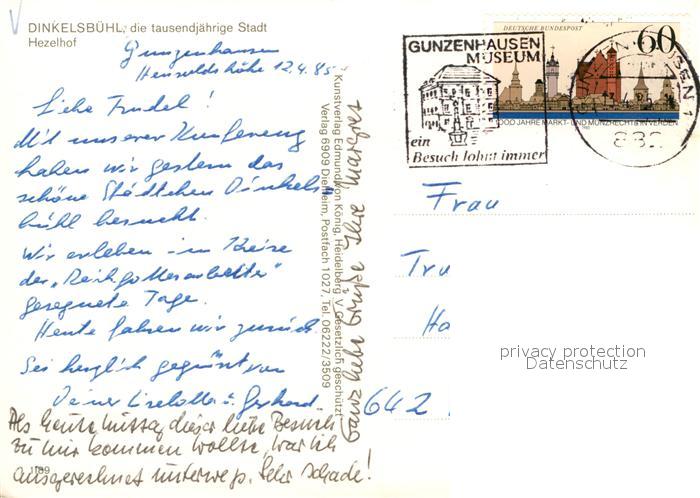 DINKELSBÜHL, die tausendjährige Stadt
Hezelhof
Gunzenhausen
Hensoltshöhe 12.4.85
Liebe Trudel!
Mit unserer Konferenz
haben wir gestern das
schöne Städtchen Dinkels-
bühl besucht.
Wir erleben im Kreise
der „Reichgottesarbeiter"
gesegnete Tage.
Heute fahren wir zurück.
Sei herzlich gegrüßt von
Deiner Liselotte u. Gerhard
Als heute Mittag dieser liebe Besuch
zu mir kommen wollte, war ich
ausgerechnet unterwegs. Sehr schade!
1/89
Ganz liebe Grüße Ihre Margret
Kunstverlag Edmund von König, Heidelberg. V Gesetzlich geschützt
Verlag 6909 Dielheim, Postfach 1027, Tel. 06222/3509
GUNZENHAUSEN
MUSEUM
ein
Besuch lohnt immer
DEUTSCHE BUNDESPOST
60
1000 JAHRE MARKT- UND MÜNZRECHT IN VERDEN
882
Frau
Tru
Ha
642
privacy protection
Datenschutz